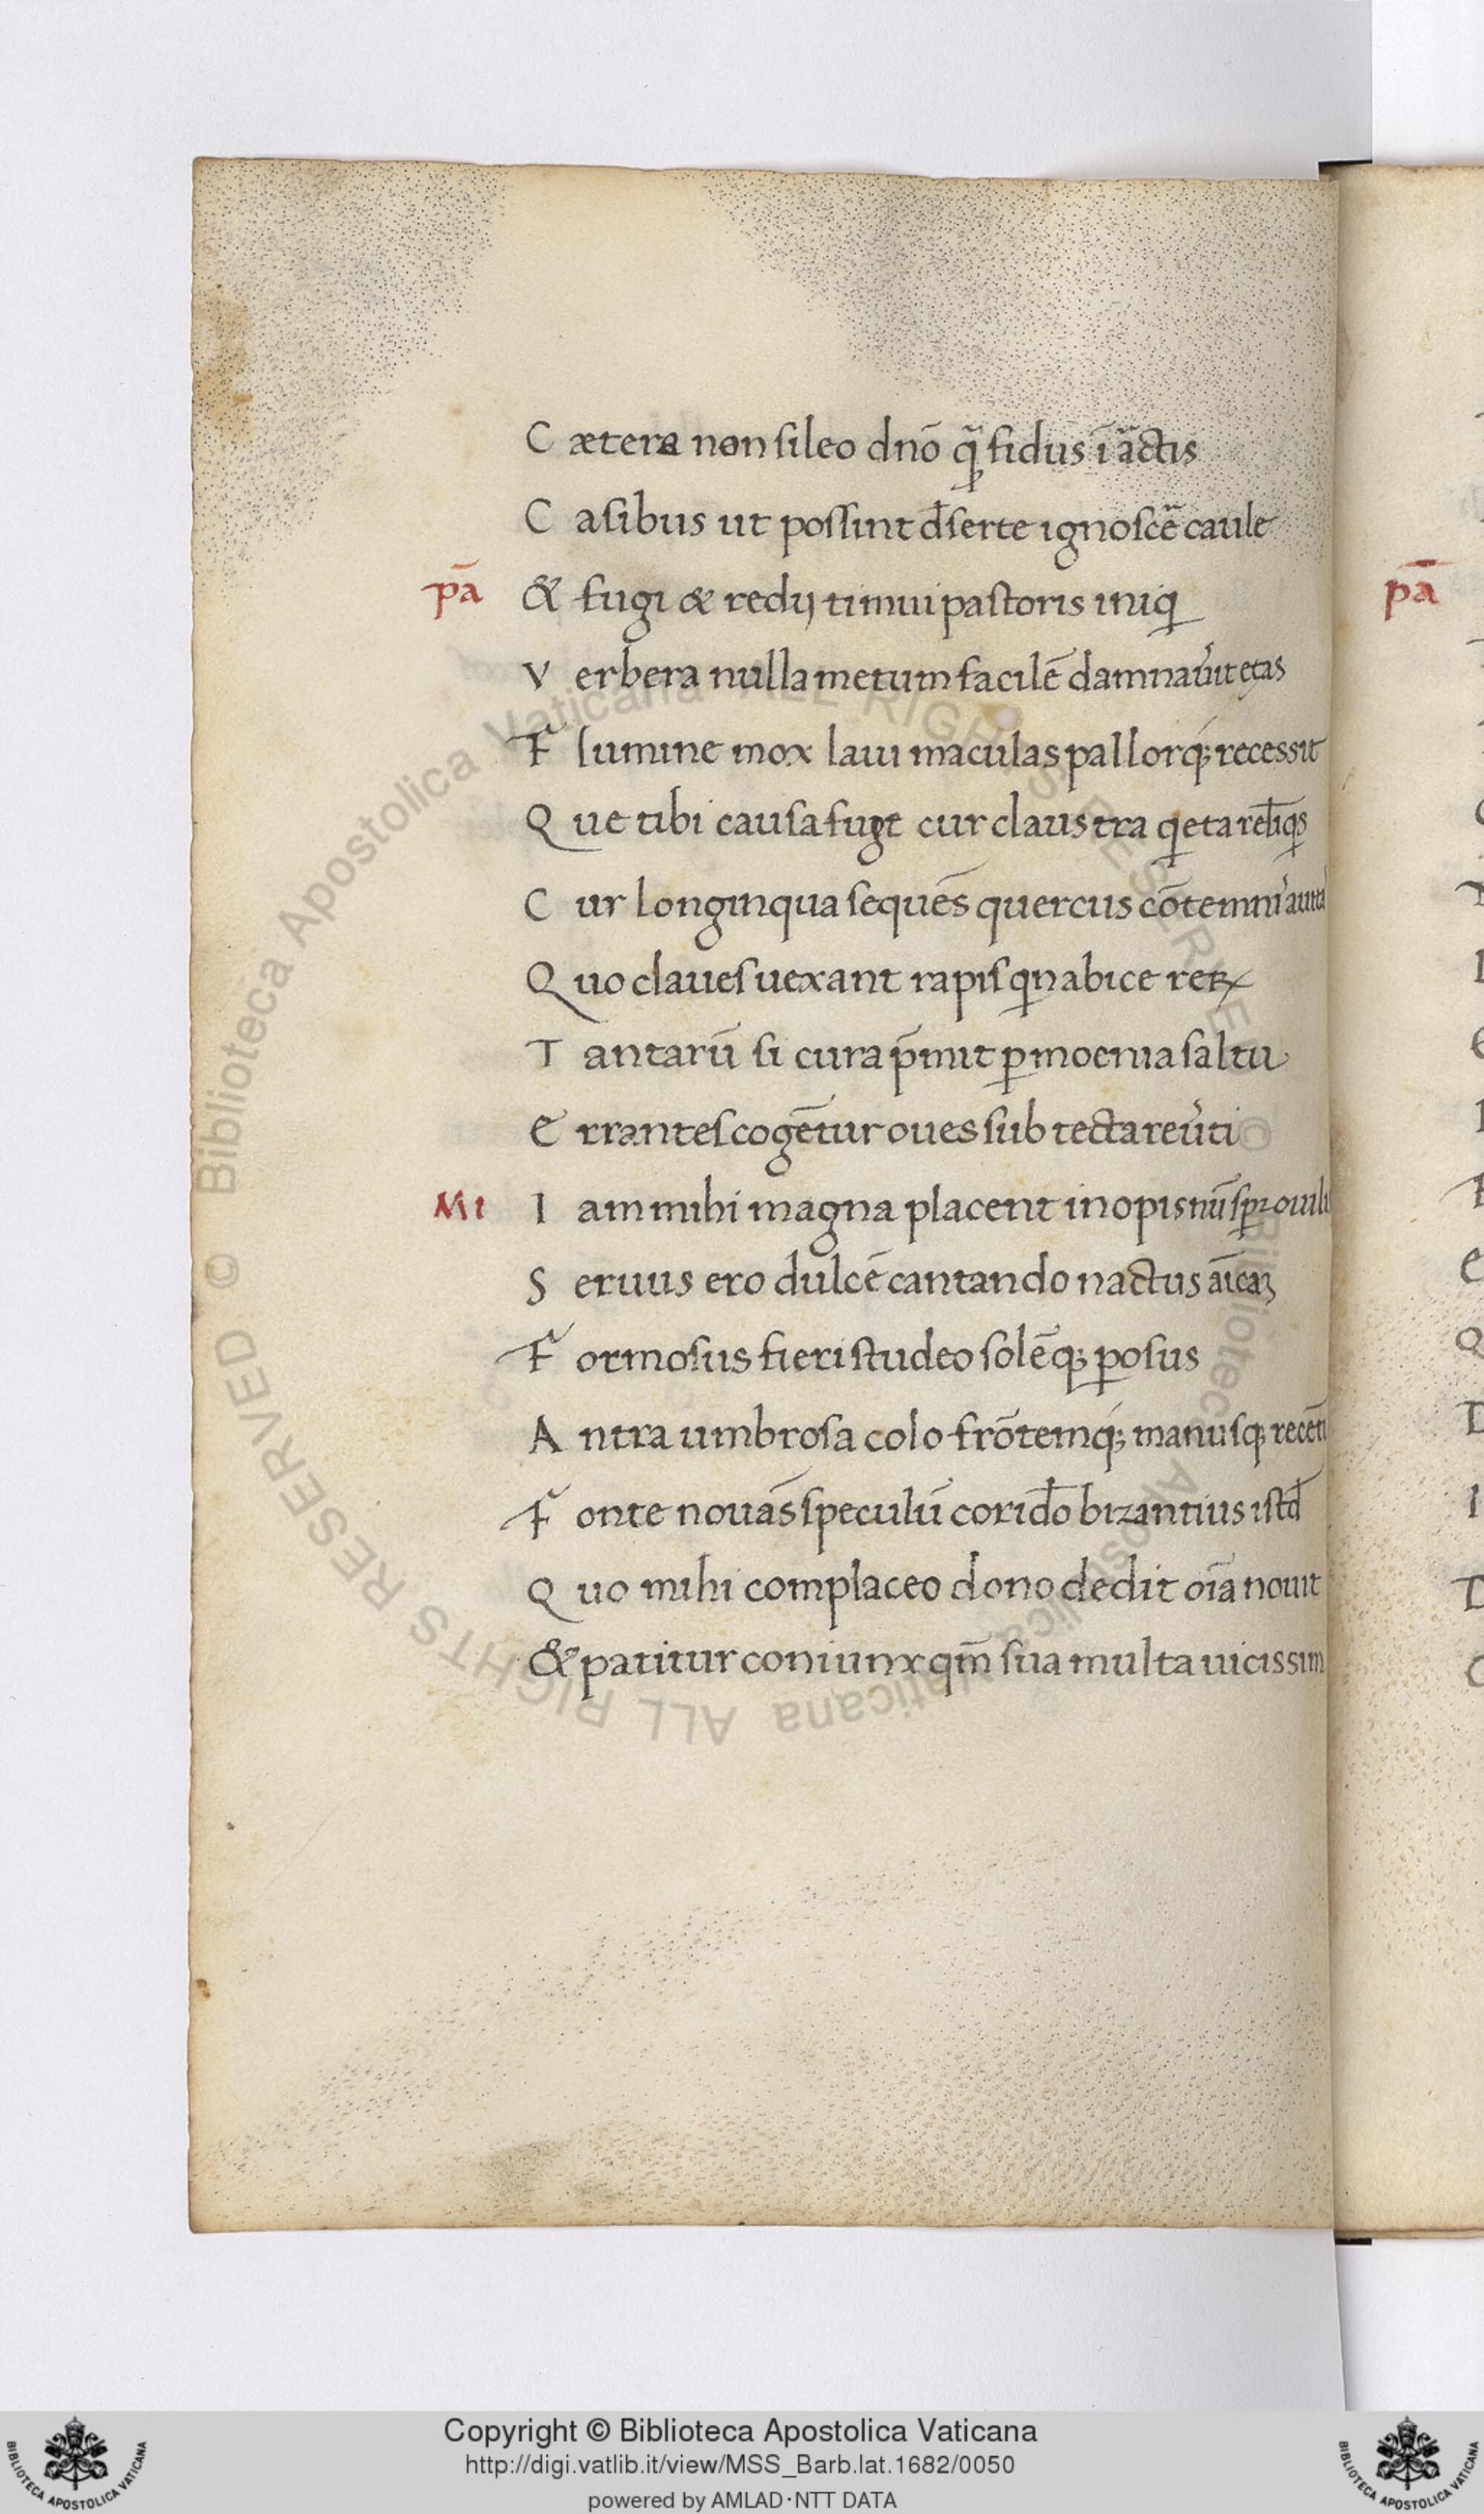 C ætera non sileo dnō q̃ fidus ī ãctis
C asibus ut possint d̄serte ignoscẽ caule
pā & fugi & redij timui pastoris iniq
V erbera nulla metum facilē damnau̾it etas
F lumine mox laui maculas pallorq; recessit
Q ue tibi causa fuge cur claustra q̣eta
C ur longinqua sequēs quercus cōtemn̾
Q uo claues uexant rapis
T antarū si cura p̄mit ꝑ moenia saltu
E rrantes cogētur oues sub tecta reu̾ti
Mi I am mihi magna placent inopis nū
S eruus ero dulcē cantando nactus aīcaꝫ
F ormosus fieri studeo solēq; ꝑosus
A ntra umbrosa colo frōtemq; manusq; recēti
F onte nouās speculū corid̄o bizantius istd̄
Q uo mihi complaceo dono dedit oīa nouit
& patitur coniunx qm̄ sua multa uicissim
pā
© Biblioteca Apostolica Vaticana ALL RIGHTS RESERVED
© Biblioteca Apostolica Vaticana ALL RIGHTS RESERVED
Copyright © Biblioteca Apostolica Vaticana
http://digi.vatlib.it/view/MSS_Barb.lat.1682/0050
powered by AMLAD·NTT DATA
BIBLIOTECA APOSTOLICA VATICANA
BIBLIOTECA APOSTOLICA VATICANA